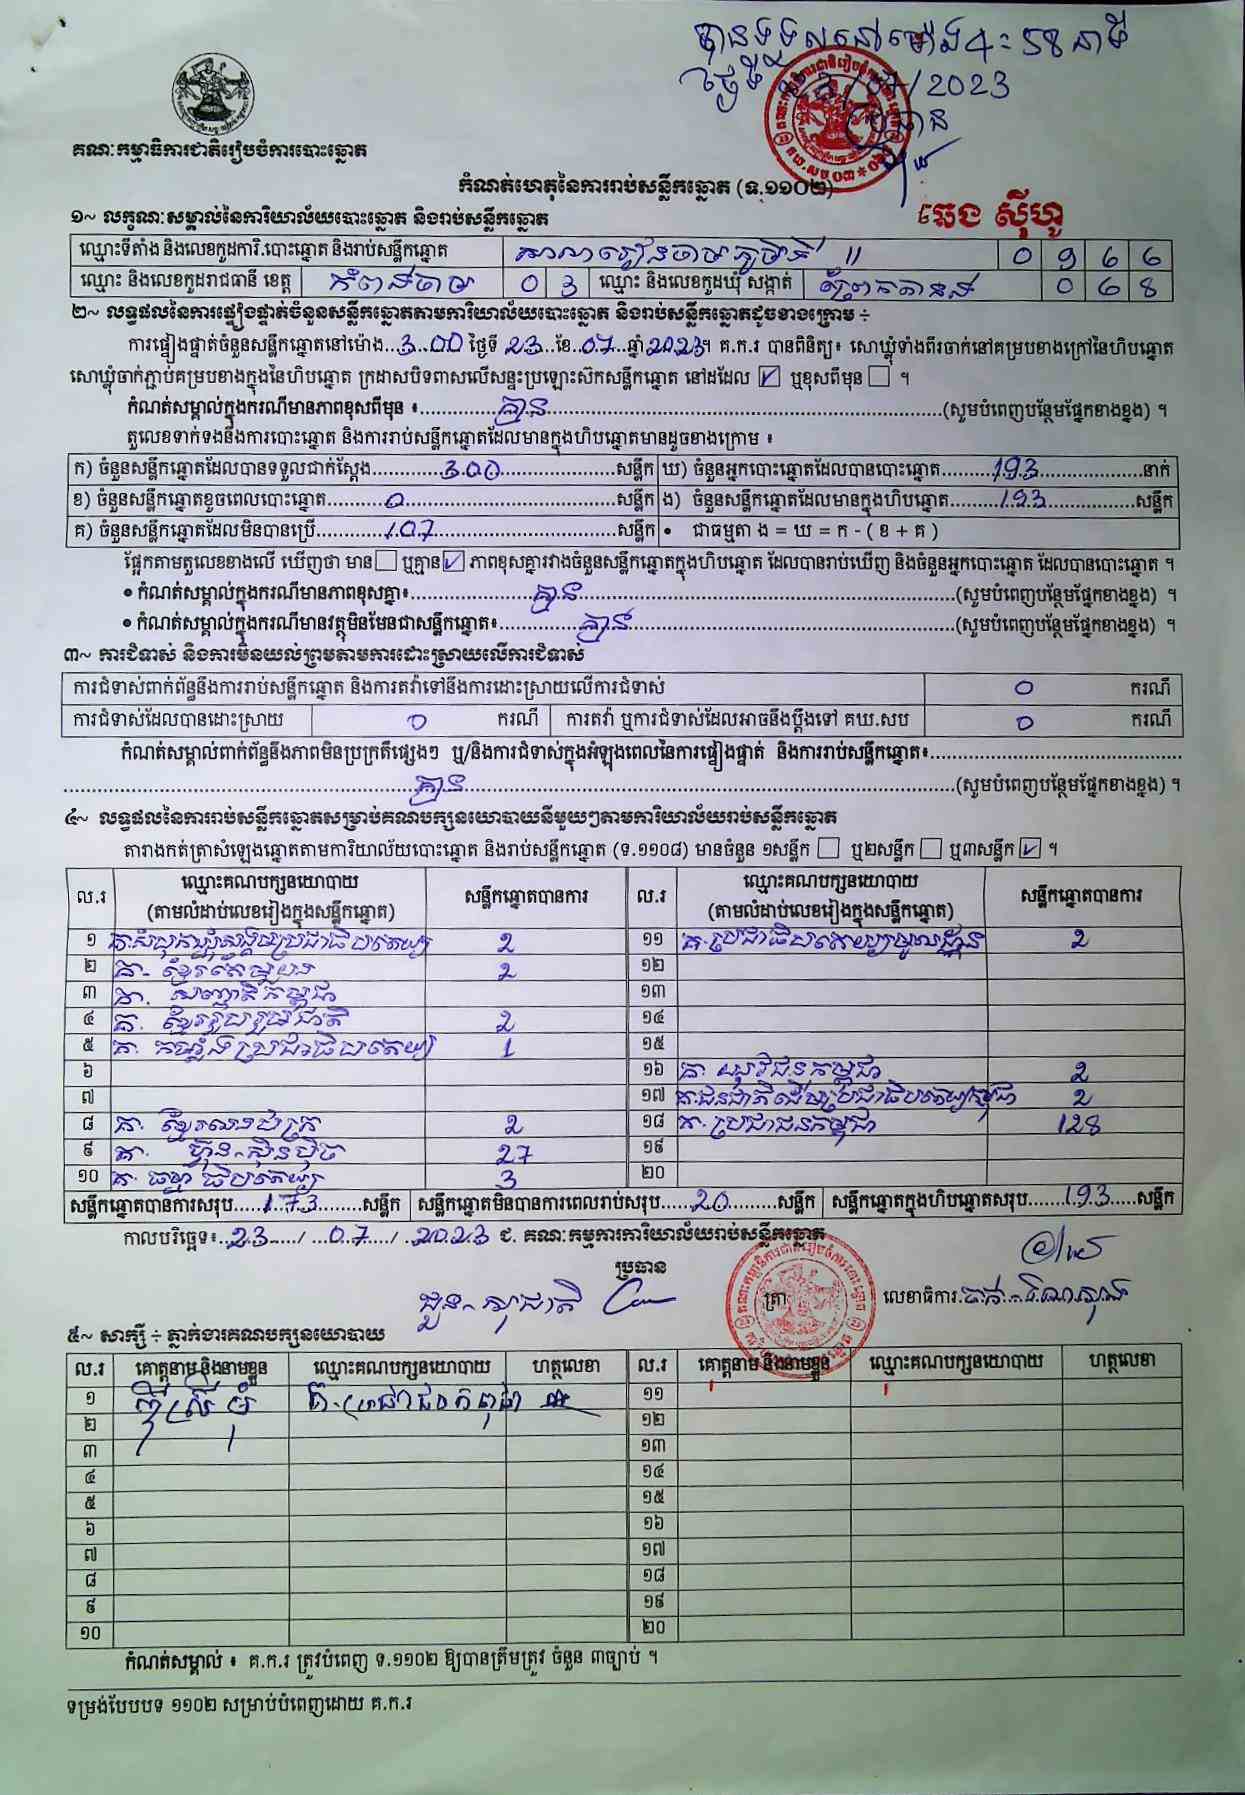 បានទទួលនៅម៉ោង 4:58 នាទី
ថ្ងៃទី 23/07/2023
ប្រធាន
ឆេង ស៊ីហូ
គណៈកម្មាធិការជាតិរៀបចំការបោះឆ្នោត
កំណត់ហេតុនៃការរាប់សន្លឹកឆ្នោត (ទ.១១០២)
១~ លក្ខណៈសម្គាល់នៃការិយាល័យបោះឆ្នោត និងរាប់សន្លឹកឆ្នោត
ឈ្មោះទីតាំង និងលេខកូដការិ.បោះឆ្នោត និងរាប់សន្លឹកឆ្នោត 0 9 6 6
ឈ្មោះ និងលេខកូដរាជធានី ខេត្ត កំពង់ចាម 0 3 ឈ្មោះ និងលេខកូដឃុំ សង្កាត់ 0 6 8
២~ លទ្ធផលនៃការផ្ទៀងផ្ទាត់ចំនួនសន្លឹកឆ្នោតតាមការិយាល័យបោះឆ្នោត និងរាប់សន្លឹកឆ្នោតដូចខាងក្រោម ÷
ការផ្ទៀងផ្ទាត់ចំនួនសន្លឹកឆ្នោតនៅម៉ោង...3:00 ថ្ងៃទី 23...ខែ.07...ឆ្នាំ 2023។ គ.ក.រ បានពិនិត្យ៖ សោឃ្លុំទាំងពីរចាក់នៅគម្របខាងក្រៅនៃហិបឆ្នោត
សោឃ្លុំចាក់ភ្ជាប់គម្របខាងក្នុងនៃហិបឆ្នោត ក្រដាសបិទពាសលើសន្ទះប្រឡោះស៊កសន្លឹកឆ្នោត នៅដដែល ☑ ឬខុសពីមុន ☐ ។
កំណត់សម្គាល់ក្នុងករណីមានភាពខុសពីមុន ៖ គ្មាន (សូមបំពេញបន្ថែមផ្នែកខាងខ្នង) ។
តួលេខទាក់ទងនឹងការបោះឆ្នោត និងការរាប់សន្លឹកឆ្នោតដែលមានក្នុងហិបឆ្នោតមានដូចខាងក្រោម ៖
ក) ចំនួនសន្លឹកឆ្នោតដែលបានទទួលជាក់ស្តែង 300 សន្លឹក ឃ) ចំនួនអ្នកបោះឆ្នោតដែលបានបោះឆ្នោត 193 នាក់
ខ) ចំនួនសន្លឹកឆ្នោតខូចពេលបោះឆ្នោត 0 សន្លឹក ង) ចំនួនសន្លឹកឆ្នោតដែលមានក្នុងហិបឆ្នោត 193 សន្លឹក
គ) ចំនួនសន្លឹកឆ្នោតដែលមិនបានប្រើ 107 សន្លឹក • ជាធម្មតា ង = ឃ = ក - ( ខ + គ )
ផ្អែកតាមតួលេខខាងលើ ឃើញថា មាន ☐ ឬគ្មាន ☑ ភាពខុសគ្នារវាងចំនួនសន្លឹកឆ្នោតក្នុងហិបឆ្នោត ដែលបានរាប់ឃើញ និងចំនួនអ្នកបោះឆ្នោត ដែលបានបោះឆ្នោត ។
• កំណត់សម្គាល់ក្នុងករណីមានភាពខុសគ្នា៖ គ្មាន (សូមបំពេញបន្ថែមផ្នែកខាងខ្នង) ។
• កំណត់សម្គាល់ក្នុងករណីមានវត្ថុមិនមែនជាសន្លឹកឆ្នោត៖ គ្មាន (សូមបំពេញបន្ថែមផ្នែកខាងខ្នង) ។
៣~ ការជំទាស់ និងការមិនយល់ព្រមតាមការដោះស្រាយលើការជំទាស់
ការជំទាស់ពាក់ព័ន្ធនឹងការរាប់សន្លឹកឆ្នោត និងការតវ៉ាទៅនឹងការដោះស្រាយលើការជំទាស់ 0 ករណី
ការជំទាស់ដែលបានដោះស្រាយ 0 ករណី ការតវ៉ា ឬការជំទាស់ដែលអាចនឹងប្តឹងទៅ គឃ.សប 0 ករណី
កំណត់សម្គាល់ពាក់ព័ន្ធនឹងភាពមិនប្រក្រតីផ្សេងៗ ឬ/និងការជំទាស់ក្នុងអំឡុងពេលនៃការផ្ទៀងផ្ទាត់ និងការរាប់សន្លឹកឆ្នោត៖
គ្មាន (សូមបំពេញបន្ថែមផ្នែកខាងខ្នង) ។
៤~ លទ្ធផលនៃការរាប់សន្លឹកឆ្នោតសម្រាប់គណបក្សនយោបាយនីមួយៗតាមការិយាល័យរាប់សន្លឹកឆ្នោត
តារាងកត់ត្រាសំឡេងឆ្នោតតាមការិយាល័យបោះឆ្នោត និងរាប់សន្លឹកឆ្នោត (ទ.១១០៨) មានចំនួន ១សន្លឹក ☐ ឬ២សន្លឹក ☐ ឬ៣សន្លឹក ☑ ។
ល.រ ឈ្មោះគណបក្សនយោបាយ (តាមលំដាប់លេខរៀងក្នុងសន្លឹកឆ្នោត) សន្លឹកឆ្នោតបានការ ល.រ ឈ្មោះគណបក្សនយោបាយ (តាមលំដាប់លេខរៀងក្នុងសន្លឹកឆ្នោត) សន្លឹកឆ្នោតបានការ
១ គ.សំបុកឃ្មុំសង្គមប្រជាធិបតេយ្យ 2 ១១ គ.ប្រជាធិបតេយ្យមូលដ្ឋាន 2
២ គ. ខ្មែរតែមួយ 2 ១២
៣ គ. សញ្ជាតិកម្ពុជា ១៣
៤ គ. ខ្មែររួបរួមជាតិ 2 ១៤
៥ គ. កម្លាំងប្រជាធិបតេយ្យ 1 ១៥
៦ ១៦ គ. យុវជនកម្ពុជា 2
៧ ១៧ គ.ជនជាតិដើមប្រជាធិបតេយ្យកម្ពុជា 2
៨ គ. ខ្មែរឈប់ក្រ 2 ១៨ គ.ប្រជាជនកម្ពុជា 128
៩ គ. ហ៊្វុនស៊ិនប៉ិច 27 ១៩
១០ គ. ធម្មាធិបតេយ្យ 3 ២០
សន្លឹកឆ្នោតបានការសរុប 173 សន្លឹក សន្លឹកឆ្នោតមិនបានការពេលរាប់សរុប 20 សន្លឹក សន្លឹកឆ្នោតក្នុងហិបឆ្នោតសរុប 193 សន្លឹក
កាលបរិច្ឆេទ៖ 23 / 07 / 2023 ជ. គណៈកម្មការការិយាល័យរាប់សន្លឹកឆ្នោត
ប្រធាន
ត្រា លេខាធិការ
៥~ សាក្សី ÷ ភ្នាក់ងារគណបក្សនយោបាយ
ល.រ គោត្តនាម និងនាមខ្លួន ឈ្មោះគណបក្សនយោបាយ ហត្ថលេខា ល.រ គោត្តនាម និងនាមខ្លួន ឈ្មោះគណបក្សនយោបាយ ហត្ថលេខា
១ គ.ប្រជាជនកម្ពុជា ១១
២ ១២
៣ ១៣
៤ ១៤
៥ ១៥
៦ ១៦
៧ ១៧
៨ ១៨
៩ ១៩
១០ ២០
កំណត់សម្គាល់ ៖ គ.ក.រ ត្រូវបំពេញ ទ.១១០២ ឱ្យបានត្រឹមត្រូវ ចំនួន ៣ច្បាប់ ។
ទម្រង់បែបបទ ១១០២ សម្រាប់បំពេញដោយ គ.ក.រ